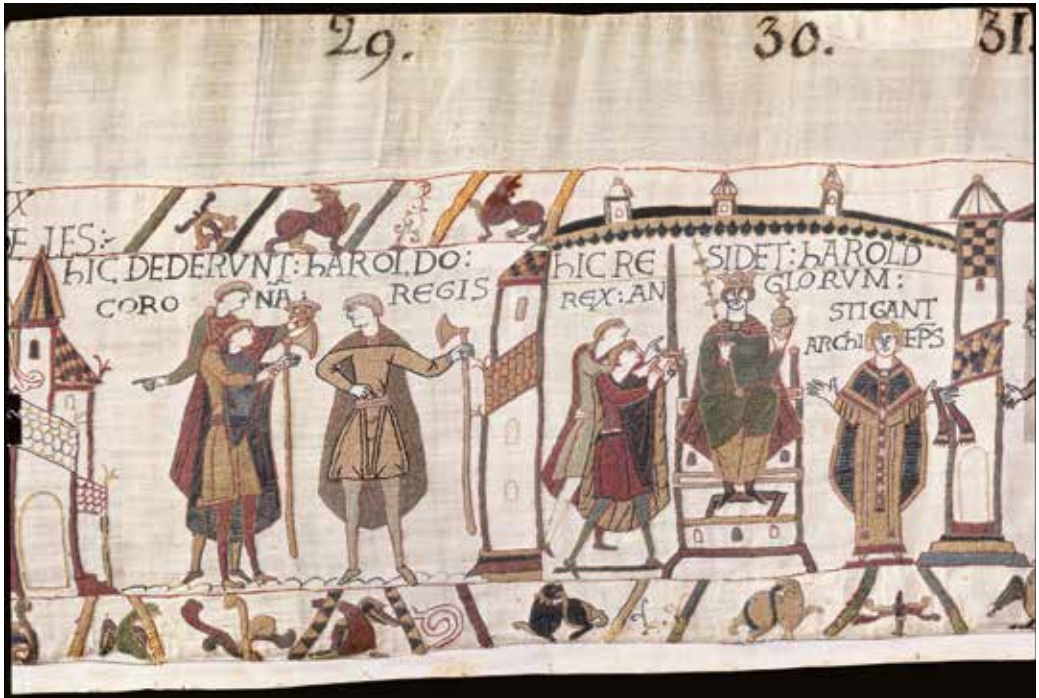 29.
30.
31.
X
E IES:
hIC DEDERVNT: hAROLDO:
CORO NA: REGIS
hIC RE SIDET: hAROLD
REX: AN GLORVM:
STIGANT
ARChI EPS